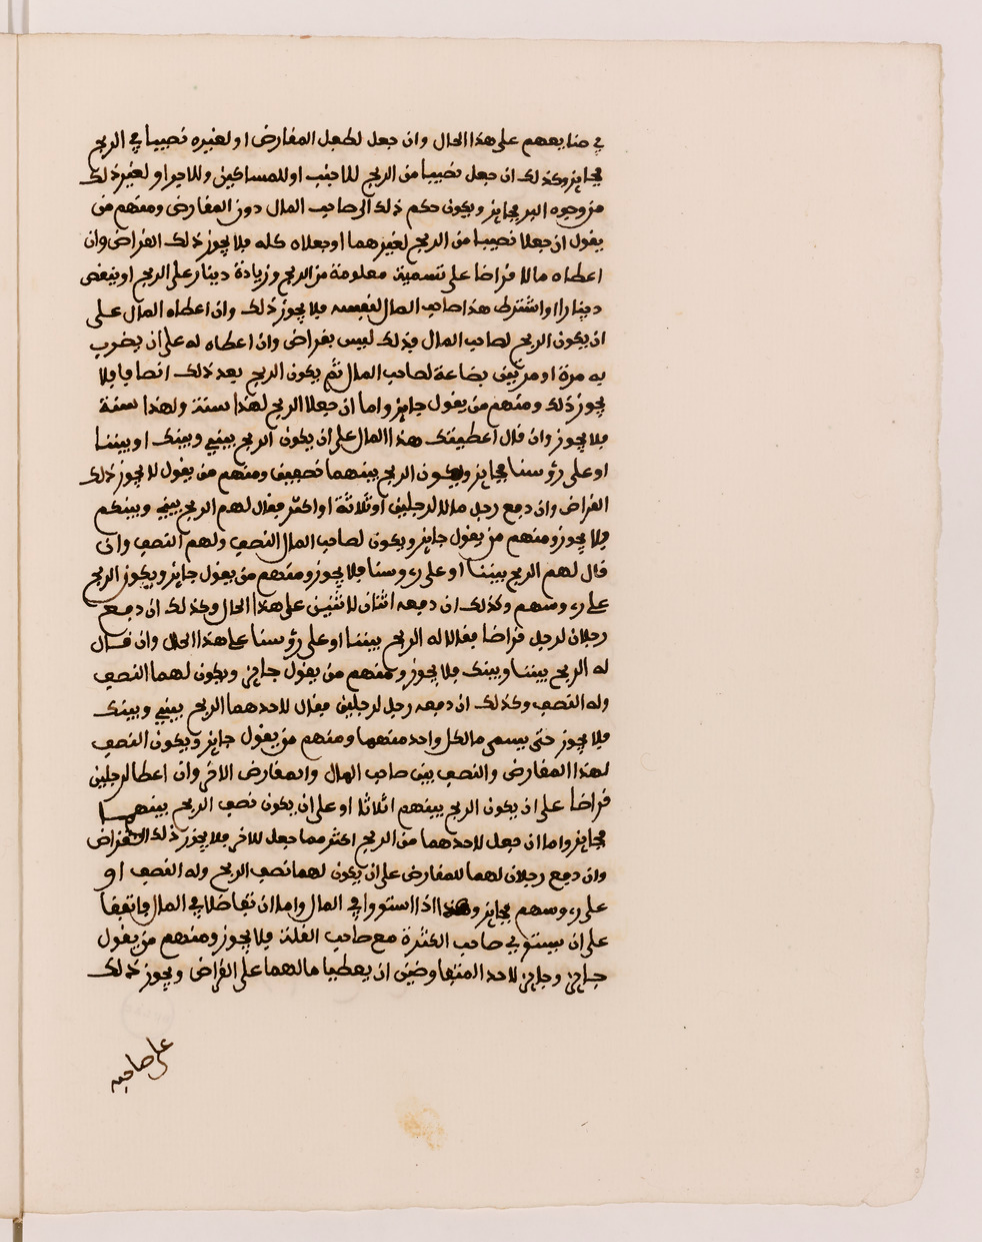 في منابعهم على هذا الحال وان جعل لطفل المقارض او لغيره نصيبا في الربح
فجايز وكذلك ان جعل نصيبا من الربح للاجنب او للمساكين وللاجر او لغير ذلك
من وجوه البر فجايز ويكون حكم ذلك الى صاحب المال دون المقارض ومنهم من
يقول ان جعلا نصيبا من الربح لغيرهما او جعلاه كله فلا يجوز ذلك القراض وان
اعطاه مالا قراضا على تسمية معلومة من الربح وزيادة دينار على الربح او ينقص
دينارا واشترط هذا صاحب المال لنفسه فلا يجوز ذلك وان اعطاه المال على
ان يكون الربح لصاحب المال فذلك ليس بقراض وان اعطاه له على ان يضرب
به مرة او مرتين بضاعة لصاحب المال ثم يكون الربح بعد ذلك انصافا فلا
يجوز ذلك ومنهم من يقول جايز واما ان جعلا الربح لهذا سنة ولهذا سنة
فلا يجوز وان قال اعطيتك هذا المال على ان يكون الربح بيني وبينك او بيننا
او على رؤسنا فجايز ويكون الربح بينهما نصفين ومنهم من يقول لا يجوز ذلك
القراض وان دفع رجل مالا لرجلين او ثلاثة او اكثر فقال لهم الربح بيني وبينكم
فلا يجوز ومنهم من يقول جايز ويكون لصاحب المال النصف ولهم النصف وان
قال لهم الربح بيننا او على رءوسنا فلا يجوز ومنهم من يقول جايز ويكون الربح
على رءوسهم وكذلك ان دفعه اثنان لاثنين على هذا الحال وكذلك ان دفع
رجلان لرجل قراضا فقالا له الربح بيننا او على رؤسنا على هذا الحال وان قال
له الربح بيننا وبينك فلا يجوز ومنهم من يقول جايز ويكون لهما النصف
وله النصف وكذلك ان دفعه رجل لرجلين فقال لاحدهما الربح بيني وبينك
فلا يجوز حتى يسمى ما لكل واحد منهما ومنهم من يقول جايز ويكون النصف
لهذا المقارض والنصف بين صاحب المال والمقارض الاخر وان اعطا لرجلين
قراضا على ان يكون الربح بينهم اثلاثا او على ان يكون نصف الربح بينهما
فجايز واما ان جعل لاحدهما من الربح اكثر مما جعل للاخر فلا يجوز ذلك القراض
وان دفع رجلان لهما للمقارض على ان يكون لهما نصف الربح وله النصف او
على رءوسهم فجايز وهذا اذا استووا في المال واما ان تفاضلا في المال فاتفقا
على ان يستوي صاحب الكثرة مع صاحب القلة فلا يجوز ومنهم من يقول
جايز وجايز لاحد المتفاوضين ان يعطيا مالهما على القراض ويجوز ذلك
على صاحبه